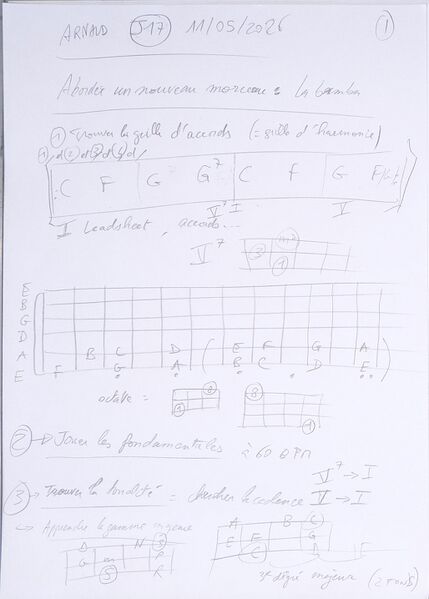 ARNAUD J17 11/05/2026 1
Aborder un nouveau morceau : La bamba
1 Trouver la grille d'accords (= grille d'harmonie)
C F G G7 C F G F
V7 I V
I Leadsheet, accords...
V7 3 1
E
B
G
D
A B C D E F G A
E F G A B C D E
octave = 1 8 8 1
2 → Jouer les fondamentales à 60 BPM
V7 → I
3 → Trouver la tonalité = chercher la cadence V → I
→ Apprendre la gamme
A B C
E F G
C D E
3e degré majeur (2 tons)